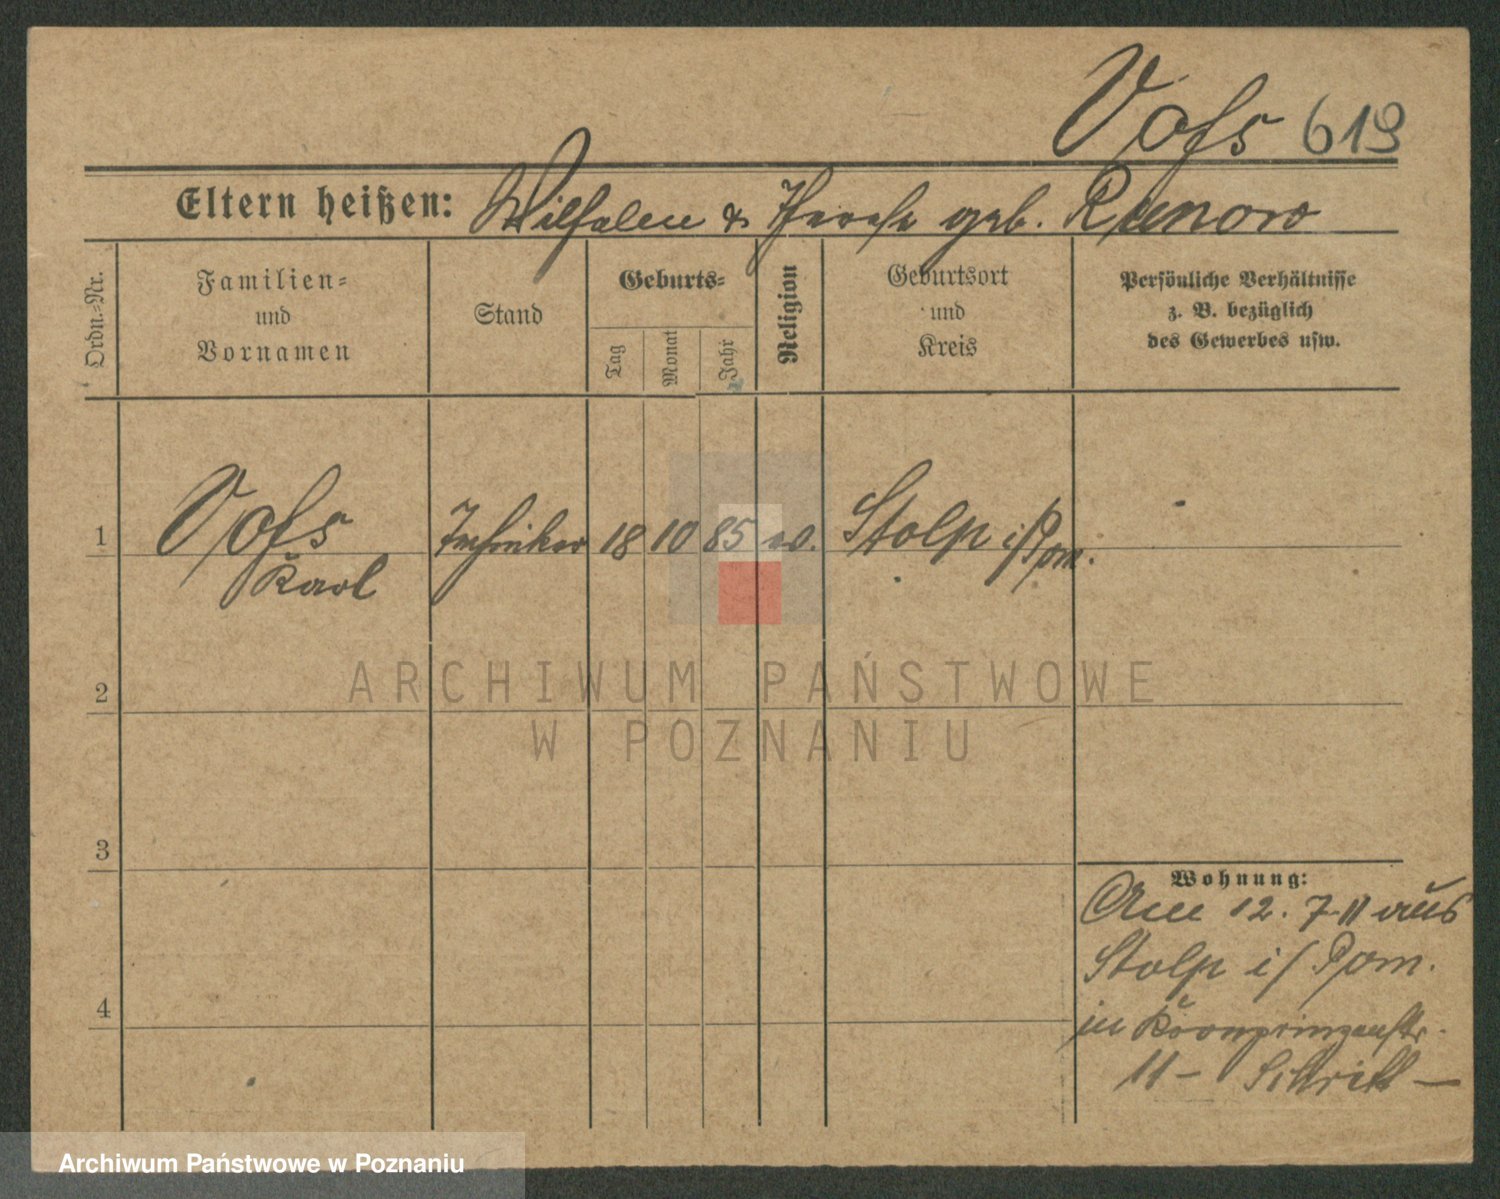 Voſs 619
Eltern heißen: Wilhelm & Therese geb. Runow
Ordn.-Nr.
Familien-
und
Vornamen
Stand
Geburts-
Tag
Monat
Jahr
Religion
Geburtsort
und
Kreis
Persönliche Verhältnisse
z. B. bezüglich
des Gewerbes usw.
1 Voſs Techniker 18 10 85 ev. Stolp i/Pom.
Karl
2
3
4
Wohnung:
Am 12. 7. 11 aus
Stolp i/ Pom.
in Kronprinzenstr.
11 –
ARCHIWUM PAŃSTWOWE
W POZNANIU
Archiwum Państwowe w Poznaniu